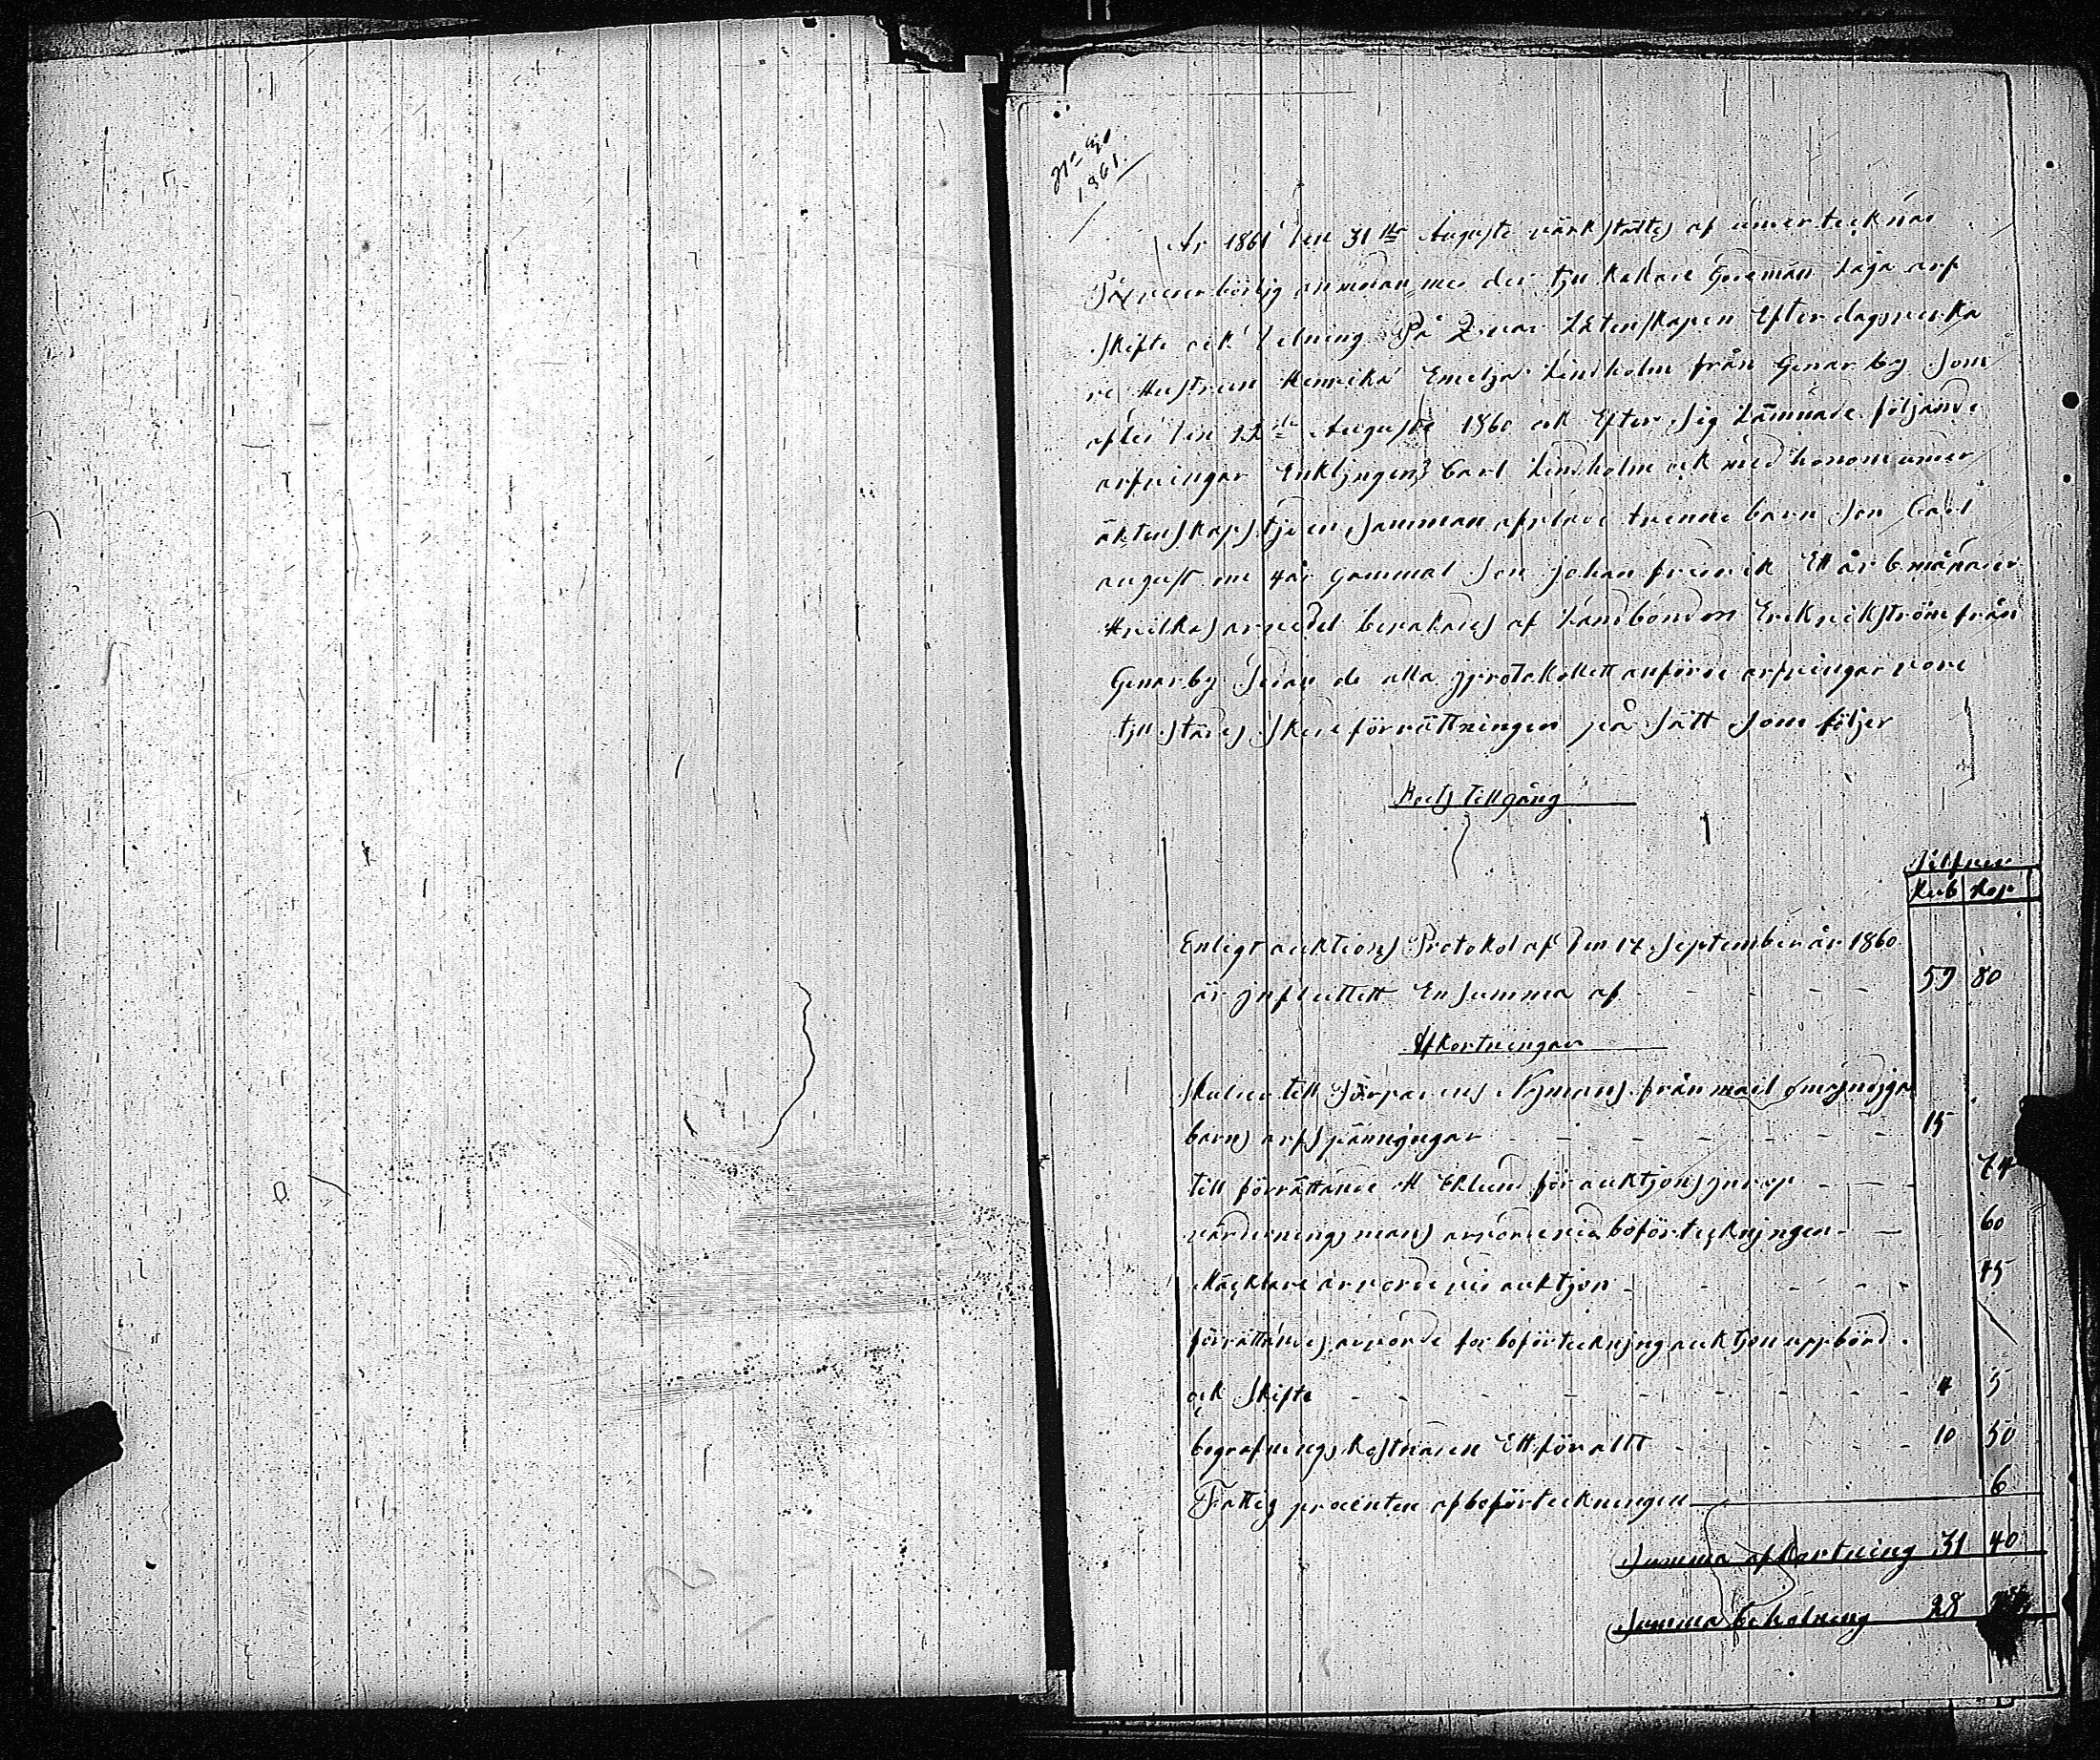 1861.
År 1861 den 31 sta Augusti värkstältes af undertecknad
På vederbörlig anmodan med der till kallade Godemän Laga arf
skifte ock delning På Qvar Låtenskapen Efter dagsverka
re Hustrun Henrika Lindholm från Genarby som
afled den 12 te Augusti 1860 ock Efter sig Lämnade följande
arfvingar Enklingen Carl Lindholm ock med honom under
äktenskaps tjden samman aflade trenne barn Son Carl
august om 4 år gammal Son johan fredrik Ett år 6 månader
Hvilkas arfvedel bevakades af Landbonden Erik vikström från
Genarby Sedan de alla jprotokollett anförde arfvingar vore
till städes Skedde förrättningen på Sätt som följer
Boets tillgång
Silfver
Rub Kop
Enligt auktions Protokol af den 17 September år 1860
är jnfluttett En Summa af 59 80
Afkortningar
Skulder till Nymans från omyndjga
barns arfs pänningar 15
till förrättande Eklund för auktjons jnrop 74
värderings mans arvorde vid boförteckningen 60
arvorde vid auktjon 45
förrättandes arvorde för boförtecknjng auktjon uppbörd
ock Skifte 4 5
begrafnings kostnaden Ett för allt 10 50
Fattig procenten af boförteckningen 6
Summa afkortning 31 40
Summa behålning 28